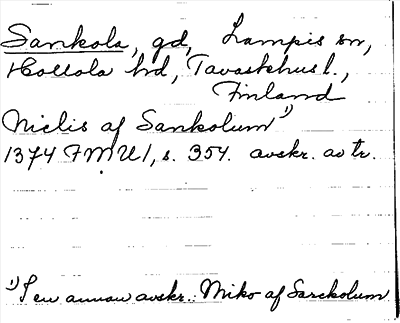 Sankola, gd, Lampis sn,
Hollola hd, Tavastehus l.,
Finland
Niclis af Sankolum 1)
1374 FMU 1, s. 354. avskr. av tr.
1) I en annan avskr.: Miko af Sarckolum